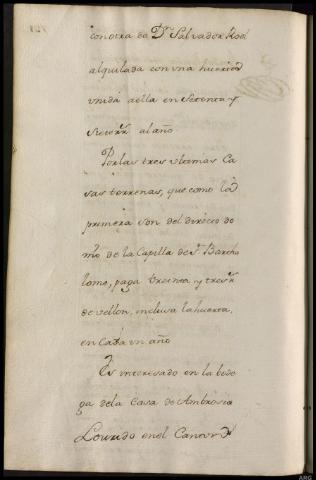 con otra de Dn. Salvador Rod
alquilada con vna huerta
vnida a ella en Setenta y
siete rr. al año
Por las tres vltimas Ca
sas terrenas, que como la
primera son del directo do
mo. de la Capilla de Sn. Bartho
lome, paga treinta y tres rr.
de vellon, inclusa la huerta,
en Cada vn año
Es interesado en la bode
ga de la Casa de Ambrosia
Lourido en el Canton de
ARG